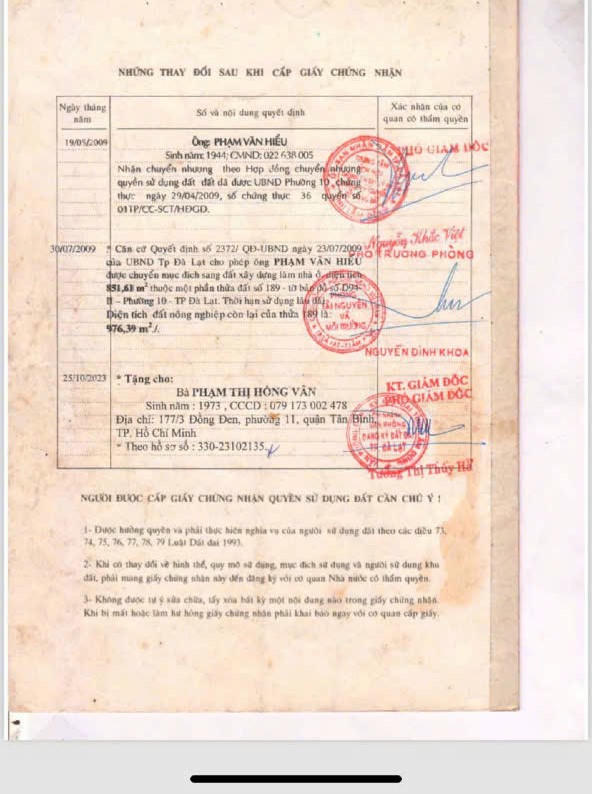 NHỮNG THAY ĐỔI SAU KHI CẤP GIẤY CHỨNG NHẬN
Ngày tháng năm
Số và nội dung quyết định
Xác nhận của cơ quan có thẩm quyền
19/05/2009
Ông: PHẠM VĂN HIỂU
Sinh năm: 1944; CMND: 022 638 005
Nhận chuyển nhượng theo Hợp đồng chuyển nhượng
quyền sử dụng đất đã được UBND Phường 10 chứng
thực ngày 29/04/2009, số chứng thực 36 quyển số
01TP/CC-SCT/HĐGD.
PHÓ GIÁM ĐỐC
Nguyễn Khắc Việt
30/07/2009
* Căn cứ Quyết định số 2372/ QĐ-UBND ngày 23/07/2009
của UBND Tp Đà Lạt cho phép ông PHẠM VĂN HIỂU
được chuyển mục đích sang đất xây dựng làm nhà ở, diện tích
851,61 m² thuộc một phần thửa đất số 189 - tờ bản đồ số D94-
II – Phường 10 - TP Đà Lạt. Thời hạn sử dụng lâu dài.
Diện tích đất nông nghiệp còn lại của thửa 189 là:
976,39 m²./.
PHÓ TRƯỞNG PHÒNG
TÀI NGUYÊN
VÀ
MÔI TRƯỜNG
NGUYỄN ĐÌNH KHOA
25/10/2023
* Tặng cho:
Bà PHẠM THỊ HỒNG VÂN
Sinh năm : 1973 , CCCD : 079 173 002 478
Địa chỉ: 177/3 Đồng Đen, phường 11, quận Tân Bình,
TP. Hồ Chí Minh
* Theo hồ sơ số : 330-23102135.
KT. GIÁM ĐỐC
PHÓ GIÁM ĐỐC
VĂN PHÒNG
ĐĂNG KÝ ĐẤT ĐAI
TP ĐÀ LẠT
Tường Thị Thúy Hà
NGƯỜI ĐƯỢC CẤP GIẤY CHỨNG NHẬN QUYỀN SỬ DỤNG ĐẤT CẦN CHÚ Ý !
1- Được hưởng quyền và phải thực hiện nghĩa vụ của người sử dụng đất theo các điều 73,
74, 75, 76, 77, 78, 79 Luật Đất đai 1993.
2- Khi có thay đổi về hình thể, quy mô sử dụng, mục đích sử dụng và người sử dụng khu
đất, phải mang giấy chứng nhận này đến đăng ký với cơ quan Nhà nước có thẩm quyền.
3- Không được tự ý sửa chữa, tẩy xóa bất kỳ một nội dung nào trong giấy chứng nhận.
Khi bị mất hoặc làm hư hỏng giấy chứng nhận phải khai báo ngay với cơ quan cấp giấy.